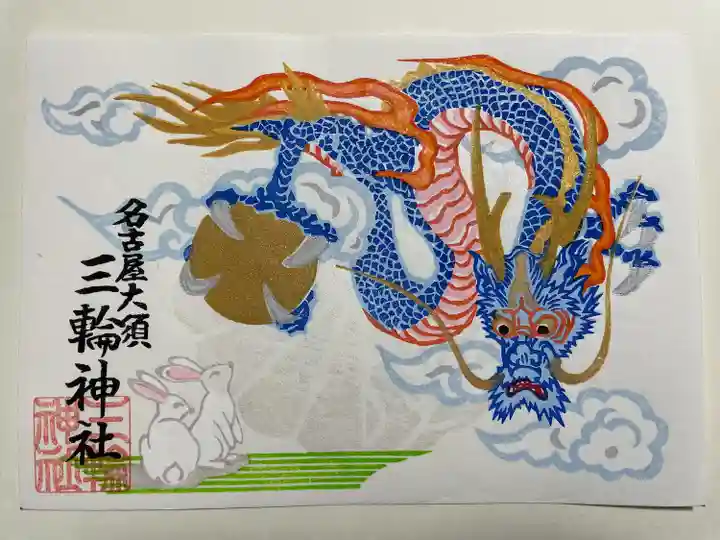 名古屋大須
三輪神社
三輪神社